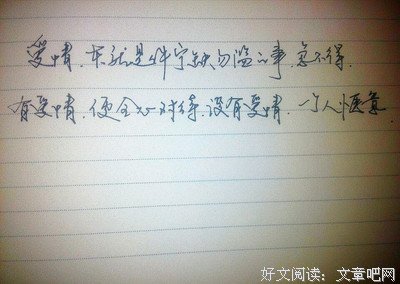 爱情.本就是件宁缺勿滥的事.急不得.
有爱情.便全心对待.没有爱情.一个人惬意.
好文阅读:文章吧网